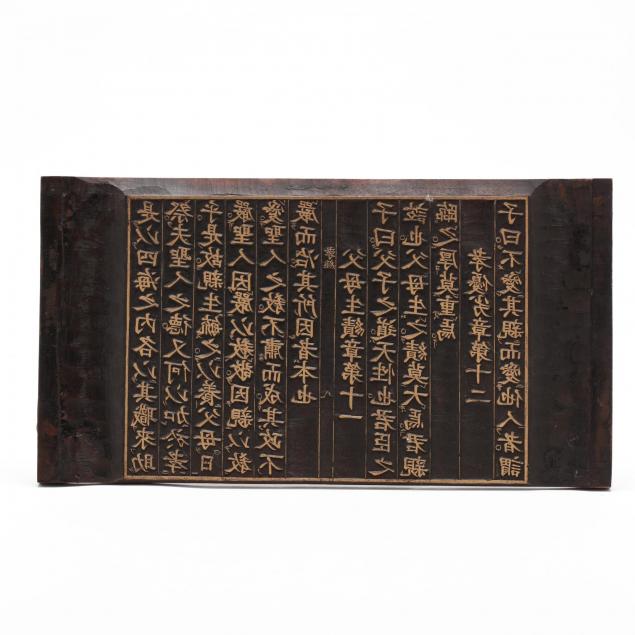 是以四海之內各以其職來助
祭夫聖人之德又何以加於孝
乎是故親生毓之以養父母日
嚴聖人因嚴以教敬因親以教
愛聖人之教不肅而成其政不
嚴而治其所因者本也
孝經 八
父母生績章第十一
子曰父子之道天性也君臣之
誼也父母生之績莫大焉君親
臨之厚莫重焉
孝優劣章第十二
子曰不愛其親而愛他人者謂